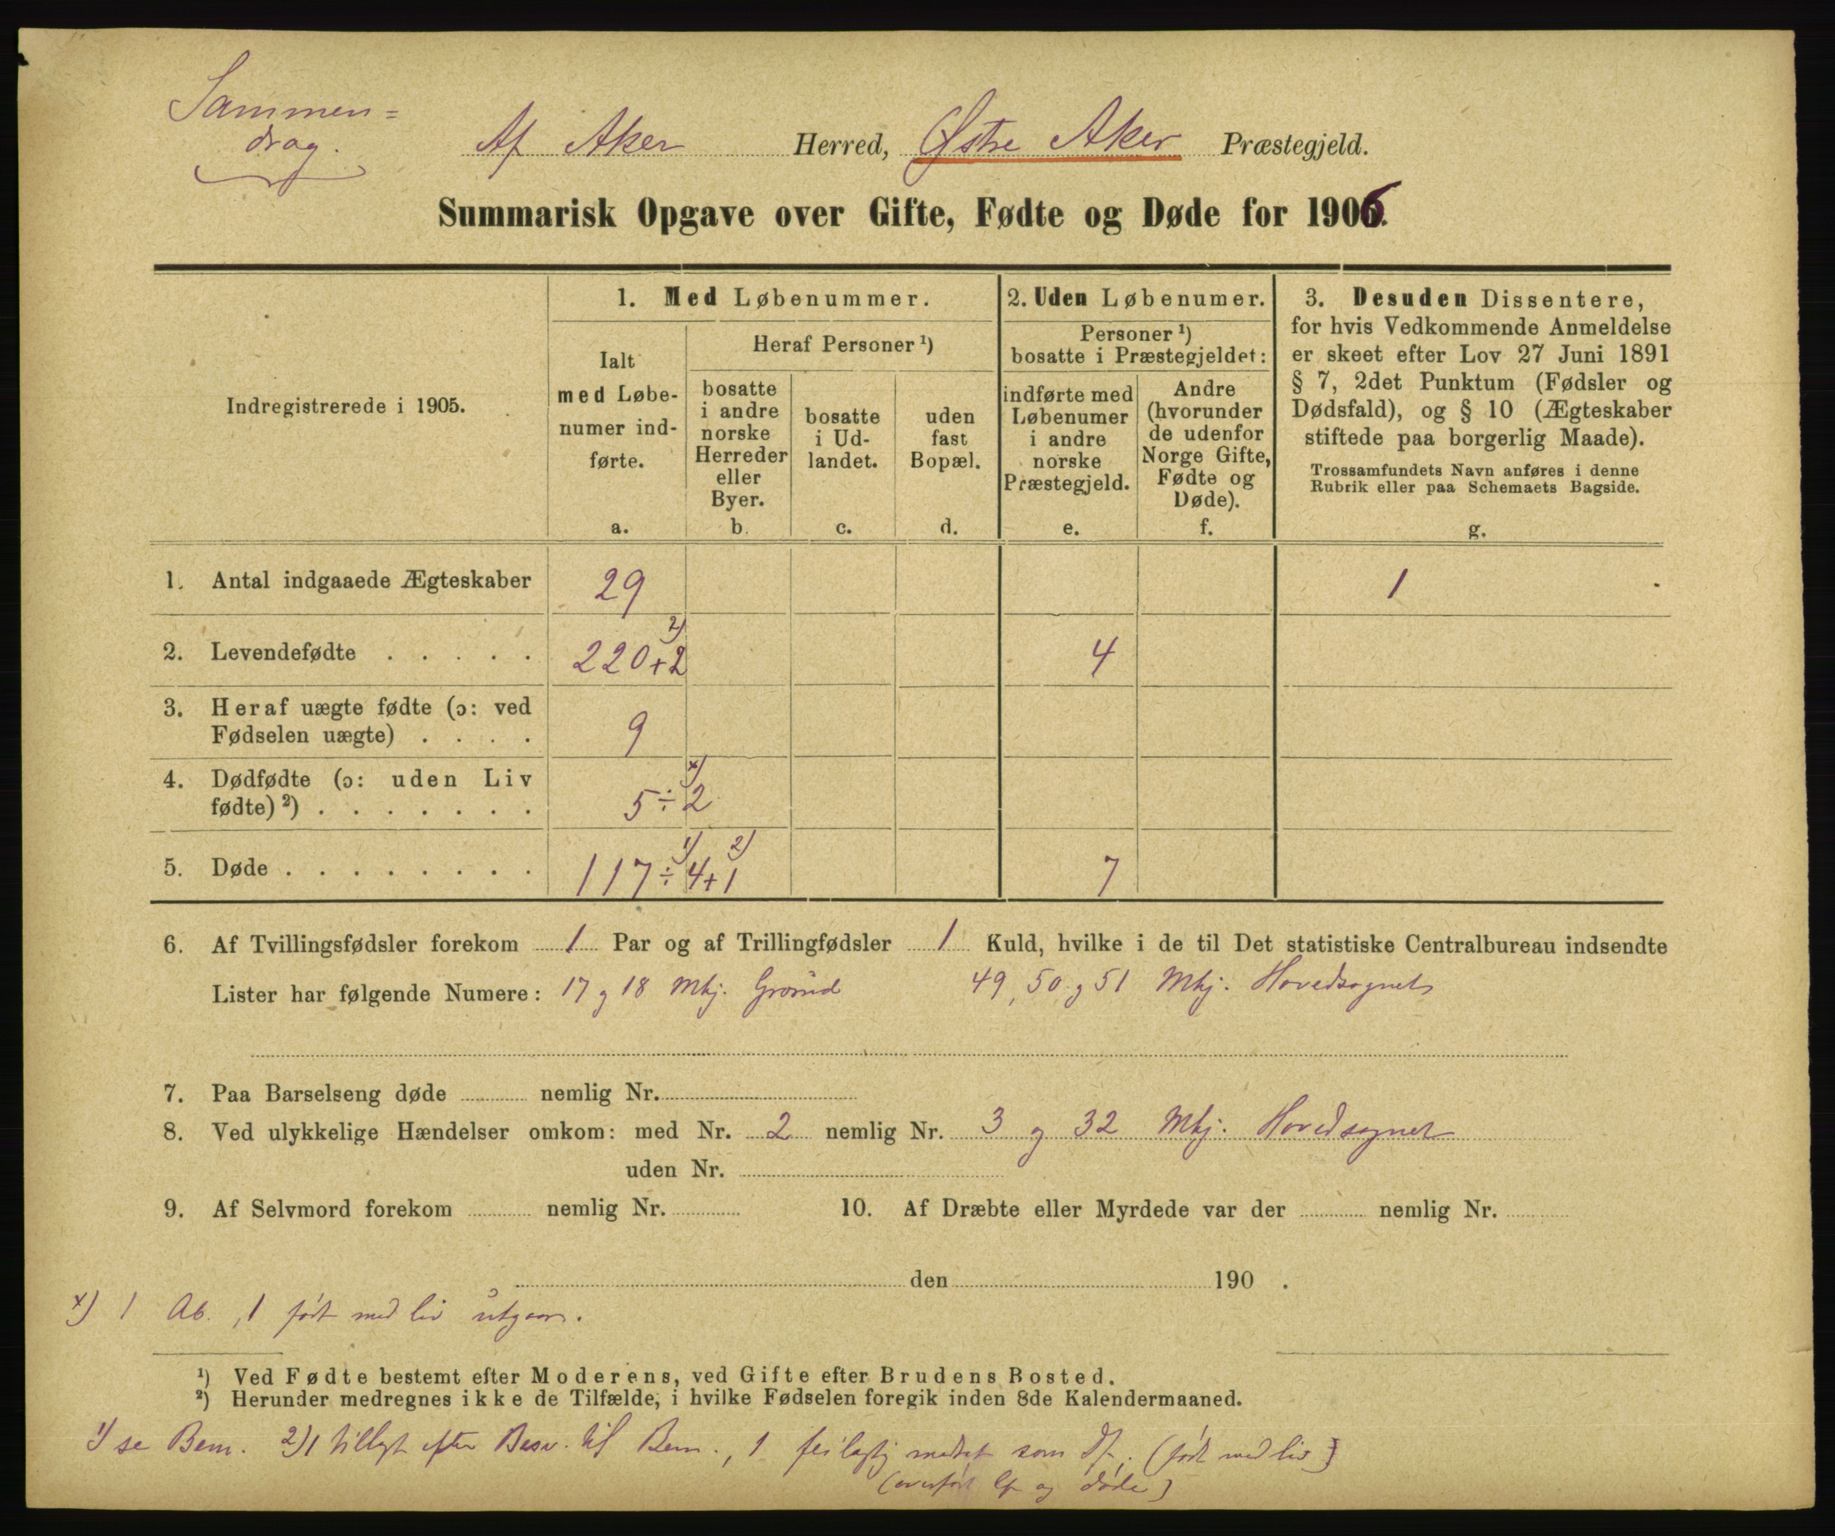 Sammen=
drag.
Af Aker Herred, Østre Aker Præstegjeld.
Summarisk Opgave over Gifte, Fødte og Døde for 1906.
Indregistrerede i 1905.
1. Med Løbenummer.
Ialt
med Løbe-
numer ind-
førte.
a.
Heraf Personer ¹)
bosatte
i andre
norske
Herreder
eller
Byer.
b.
bosatte
i Ud-
landet.
c.
uden
fast
Bopæl.
d.
2. Uden Løbenumer.
Personer ¹)
bosatte i Præstegjeldet:
indførte med
Løbenumer
i andre
norske
Præstegjeld.
e.
Andre
(hvorunder
de udenfor
Norge Gifte,
Fødte og
Døde).
f.
3. Desuden Dissentere,
for hvis Vedkommende Anmeldelse
er skeet efter Lov 27 Juni 1891
§ 7, 2det Punktum (Fødsler og
Dødsfald), og § 10 (Ægteskaber
stiftede paa borgerlig Maade).
Trossamfundets Navn anføres i denne
Rubrik eller paa Schemaets Bagside.
g.
1. Antal indgaaede Ægteskaber 29 1
2. Levendefødte . . . . . 220+2 ²) 4
3. Heraf uægte fødte (ɔ: ved
Fødselen uægte) . . . . 9
4. Dødfødte (ɔ: uden Liv
fødte) ²) . . . . . . . 5÷2 x)
5. Døde . . . . . . . . 117÷4 ¹)+1 ²) 7
6. Af Tvillingsfødsler forekom 1 Par og af Trillingfødsler 1 Kuld, hvilke i de til Det statistiske Centralbureau indsendte
Lister har følgende Numere: 17 og 18 Mkj. Grorud 49, 50 og 51 Mkj. Hovedsognet
7. Paa Barselseng døde nemlig Nr.
8. Ved ulykkelige Hændelser omkom: med Nr. 2 nemlig Nr. 3 og 32 Mkj. Hovedsognet
uden Nr.
9. Af Selvmord forekom nemlig Nr. 10. Af Dræbte eller Myrdede var der nemlig Nr.
den 190 .
x) 1 Ab., 1 født med liv utgaar.
¹) Ved Fødte bestemt efter Moderens, ved Gifte efter Brudens Bosted.
²) Herunder medregnes ikke de Tilfælde, i hvilke Fødselen foregik inden 8de Kalendermaaned.
1) se Bem. 2) 1 tillagt efter Besv. til Bem., 1 feilagtig medtat som df. (født med liv)
(overført lf og døde)